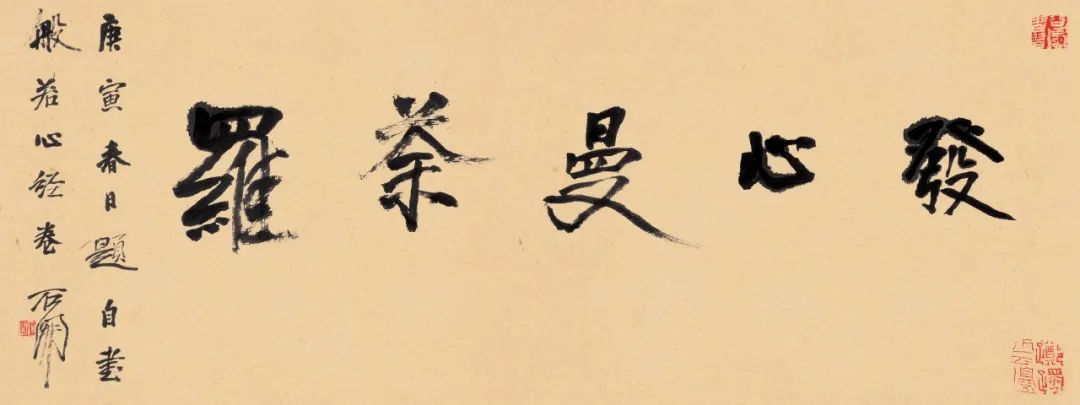 發心曼荼羅
庚寅春日題自書
般若心經卷 石開